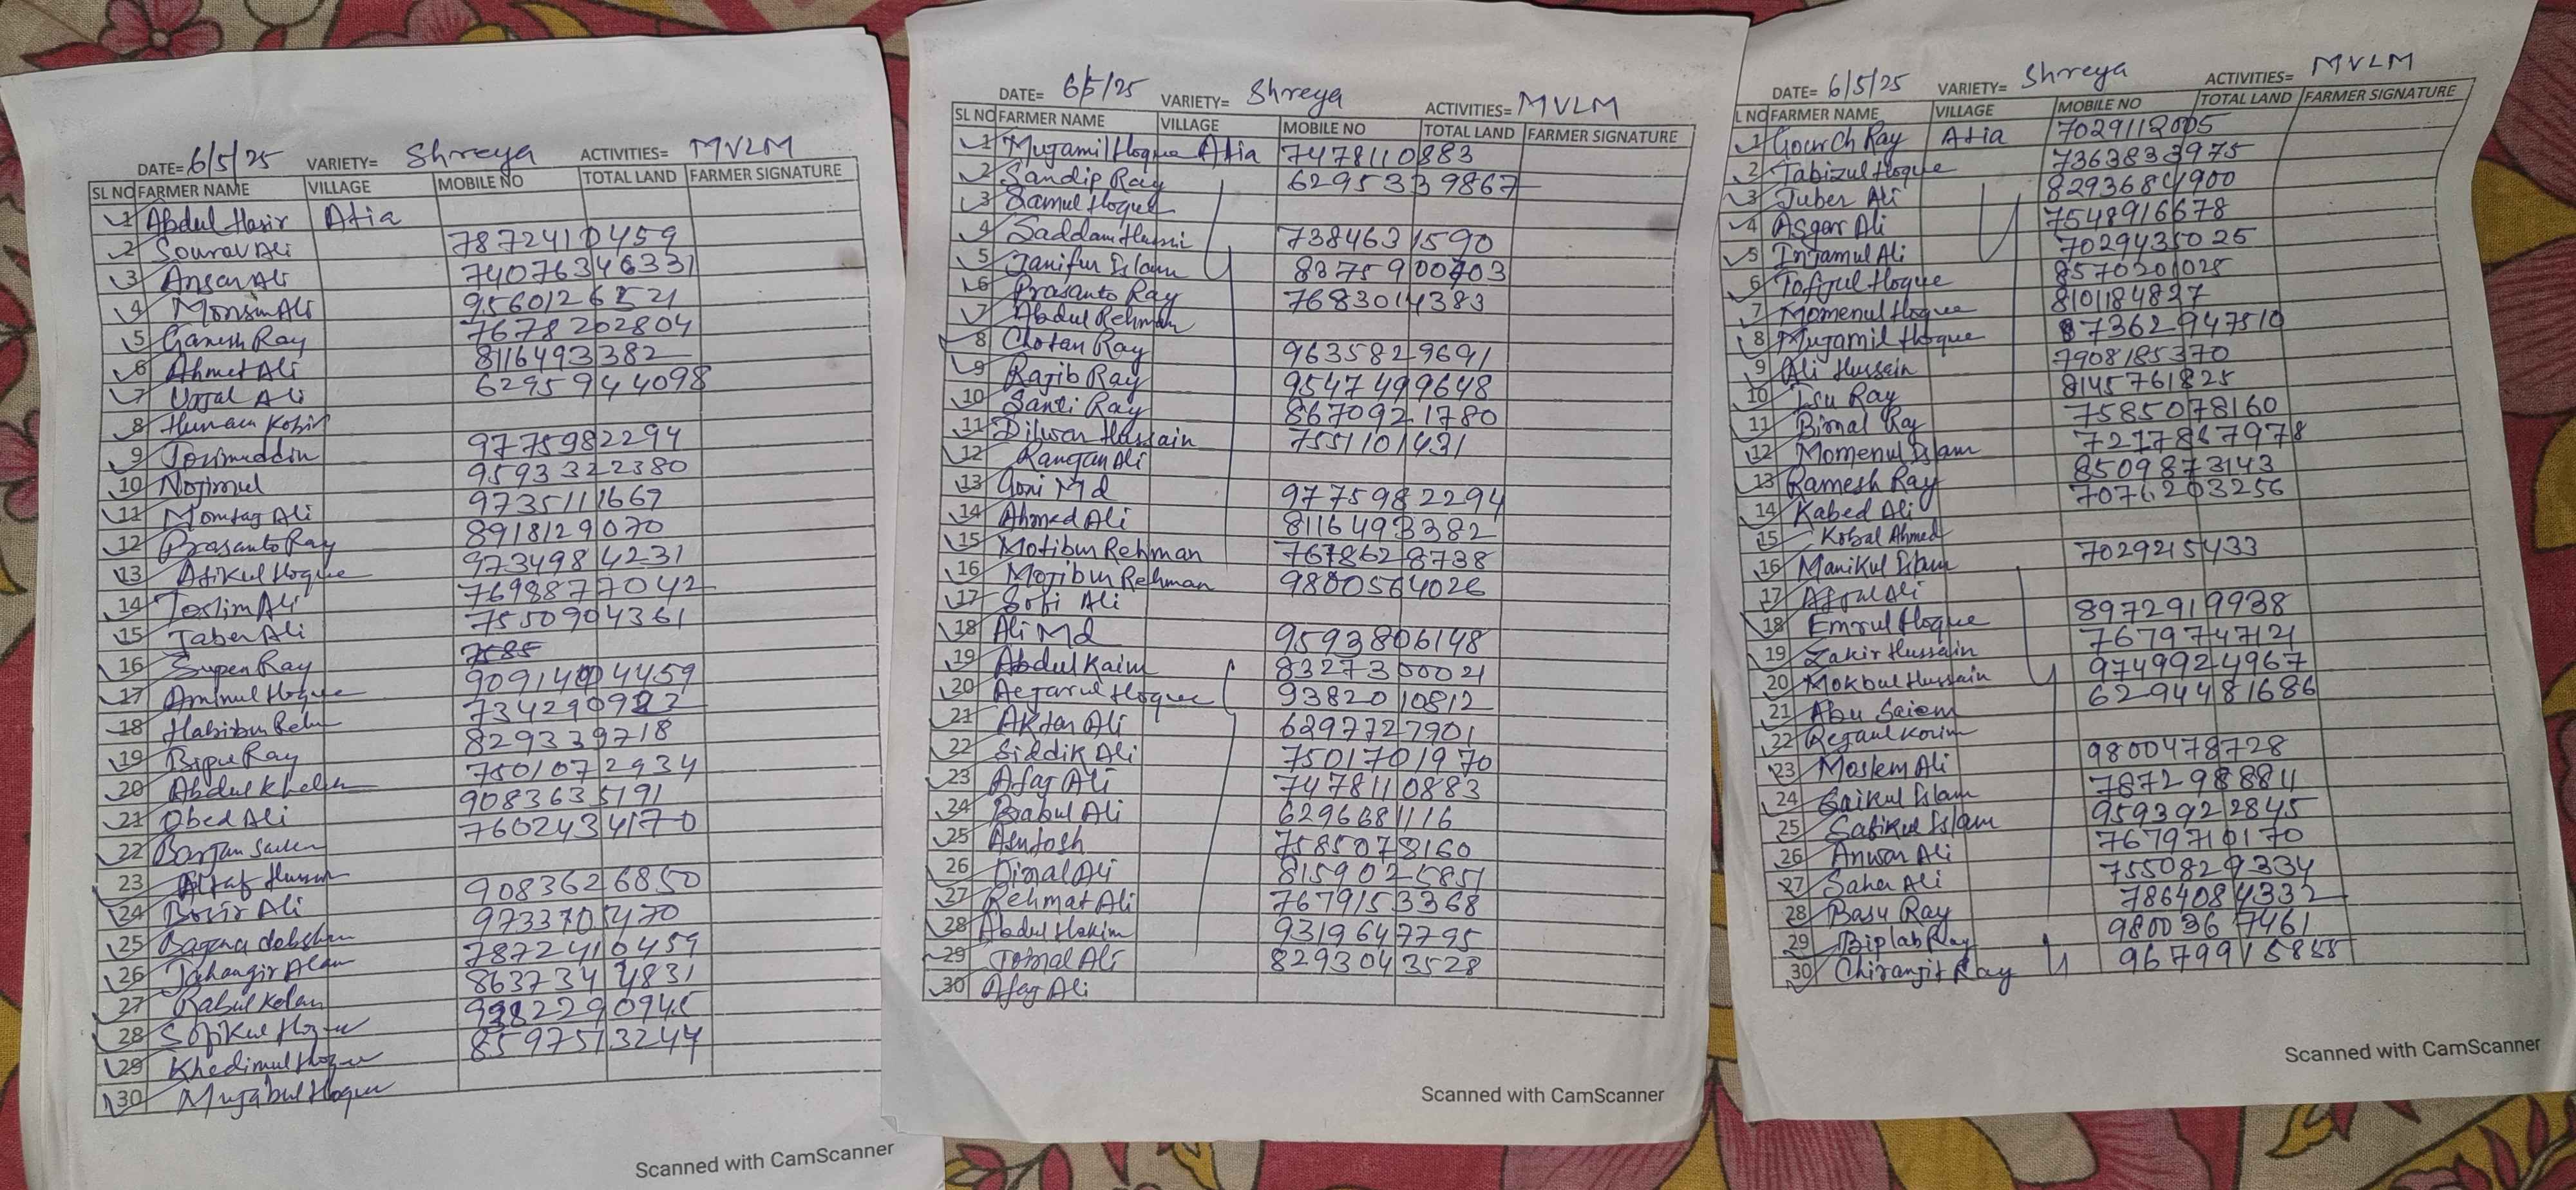 DATE= 6/5/25 VARIETY= Shreya ACTIVITIES= MVLM
SL NO FARMER NAME VILLAGE MOBILE NO TOTAL LAND FARMER SIGNATURE
1 Abdul Hasir Atia
2 Sourav Ali 7872410459
3 Ansar Ali 74076346331
4 Monsur Ali 9560126521
5 Ganesh Ray 7678202804
6 Ahmet Ali 8116493382
7 Ujjal Ali 6295944098
8 Humaun Kobir
9 Josimuddin 9775982294
10 Nojimul 9593322380
11 Momtaj Ali 9735111667
12 Prasanto Ray 8918129070
13 Atikul Hoque 9734984231
14 Toslim Ali 7698877042
15 Jaber Ali 7550904361
16 Supen Ray 7585
17 Aminul Hoque 9091404459
18 Habibur Rehm 734290982
19 Bipu Ray 829339718
20 Abdul Khalek 7501072934
21 Obed Ali 9083635191
22 Barjan 7602434170
23 Altaf Hussain
24 Bosir Ali 9083626850
25 9733705470
26 Jahangir Alam 7872410459
27 Babul Kalam 8637344831
28 Sofikul Hoque 9382290945
29 Khedimul Hoque 8597513244
30 Mujabul Hoque
Scanned with CamScanner
DATE= 6/5/25 VARIETY= Shreya ACTIVITIES= MVLM
SL NO FARMER NAME VILLAGE MOBILE NO TOTAL LAND FARMER SIGNATURE
1 Mujamil Hoque Atia 7478110883
2 Sandip Ray 6295339867
3 Samul Hoque
4 Saddam Hussai 7384631590
5 Janifur Islam 8375900703
6 Prasanto Ray 7683014383
7 Abdul Rehman
8 Chotan Ray 9635829691
9 Rajib Ray 9547499648
10 Santi Ray 8670921780
11 Dilwar Hussain 7551101431
12 Rangan Ali
13 Goni Md 9775982294
14 Ahmed Ali 8116493382
15 Motibur Rehman 7678628738
16 Mojibur Rehman 9800564026
17 Sofi Ali
18 Ali Md 9593806148
19 Abdul Kaim 8327300021
20 Aejarul Hoque 9382010812
21 Aktar Ali 6297727901
22 Siddik Ali 7501701970
23 Afaj Ali 7478110883
24 Babul Ali 6296681116
25 Asutosh 7585078160
26 Dinal Ali 8159025851
27 Rehmat Ali 7679153368
28 Abdul Hakim 9319647795
29 Joinal Ali 8293043528
30 Afaj Ali
Scanned with CamScanner
DATE= 6/5/25 VARIETY= Shreya ACTIVITIES= MVLM
L NO FARMER NAME VILLAGE MOBILE NO TOTAL LAND FARMER SIGNATURE
1 Gourch Ray Atia 7029112005
2 Tabizul Hoque 7363833975
3 Juber Ali 8293684900
4 Asgar Ali 7548916678
5 Injamul Ali 7029435025
6 Tofijul Hoque 8570201025
7 Momenul Hoque 8101184827
8 Mujamil Hoque 87362947510
9 Ali Hussein 7908185370
10 Isu Ray 8145761825
11 Bimal Ray 7585078160
12 Momenul Islam 7217867978
13 Ramesh Ray 8509873143
14 Kabed Ali 7076203256
15 Kobal Ahmed
16 Manikul Islam 7029215433
17 Ajjul Ali
18 Emrul Hoque 8972919938
19 Zakir Hussain 7679747121
20 Mokbul Hussain 9749924967
21 Abu Saiem 6294481686
22 Rejaul Korim
23 Moslem Ali 9800478728
24 Saikul Islam 7872988811
25 Safikul Islam 9593922845
26 Anwar Ali 7679710170
27 Saha Ali 7550829334
28 Basu Ray 7864084332
29 Biplab Ray 9800367461
30 Chiranjit Ray 9679915855
Scanned with CamScanner